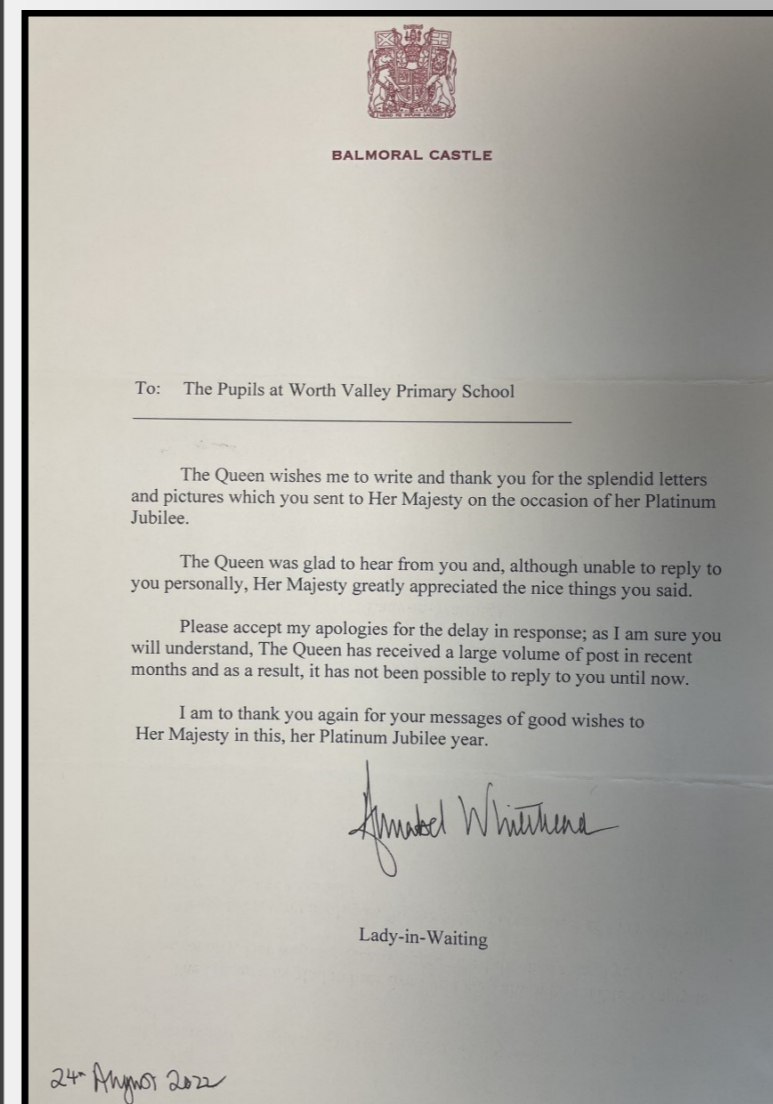 BALMORAL CASTLE
To: The Pupils at Worth Valley Primary School
The Queen wishes me to write and thank you for the splendid letters
and pictures which you sent to Her Majesty on the occasion of her Platinum
Jubilee.
The Queen was glad to hear from you and, although unable to reply to
you personally, Her Majesty greatly appreciated the nice things you said.
Please accept my apologies for the delay in response; as I am sure you
will understand, The Queen has received a large volume of post in recent
months and as a result, it has not been possible to reply to you until now.
I am to thank you again for your messages of good wishes to
Her Majesty in this, her Platinum Jubilee year.
Annabel Whitehead
Lady-in-Waiting
24th August 2022